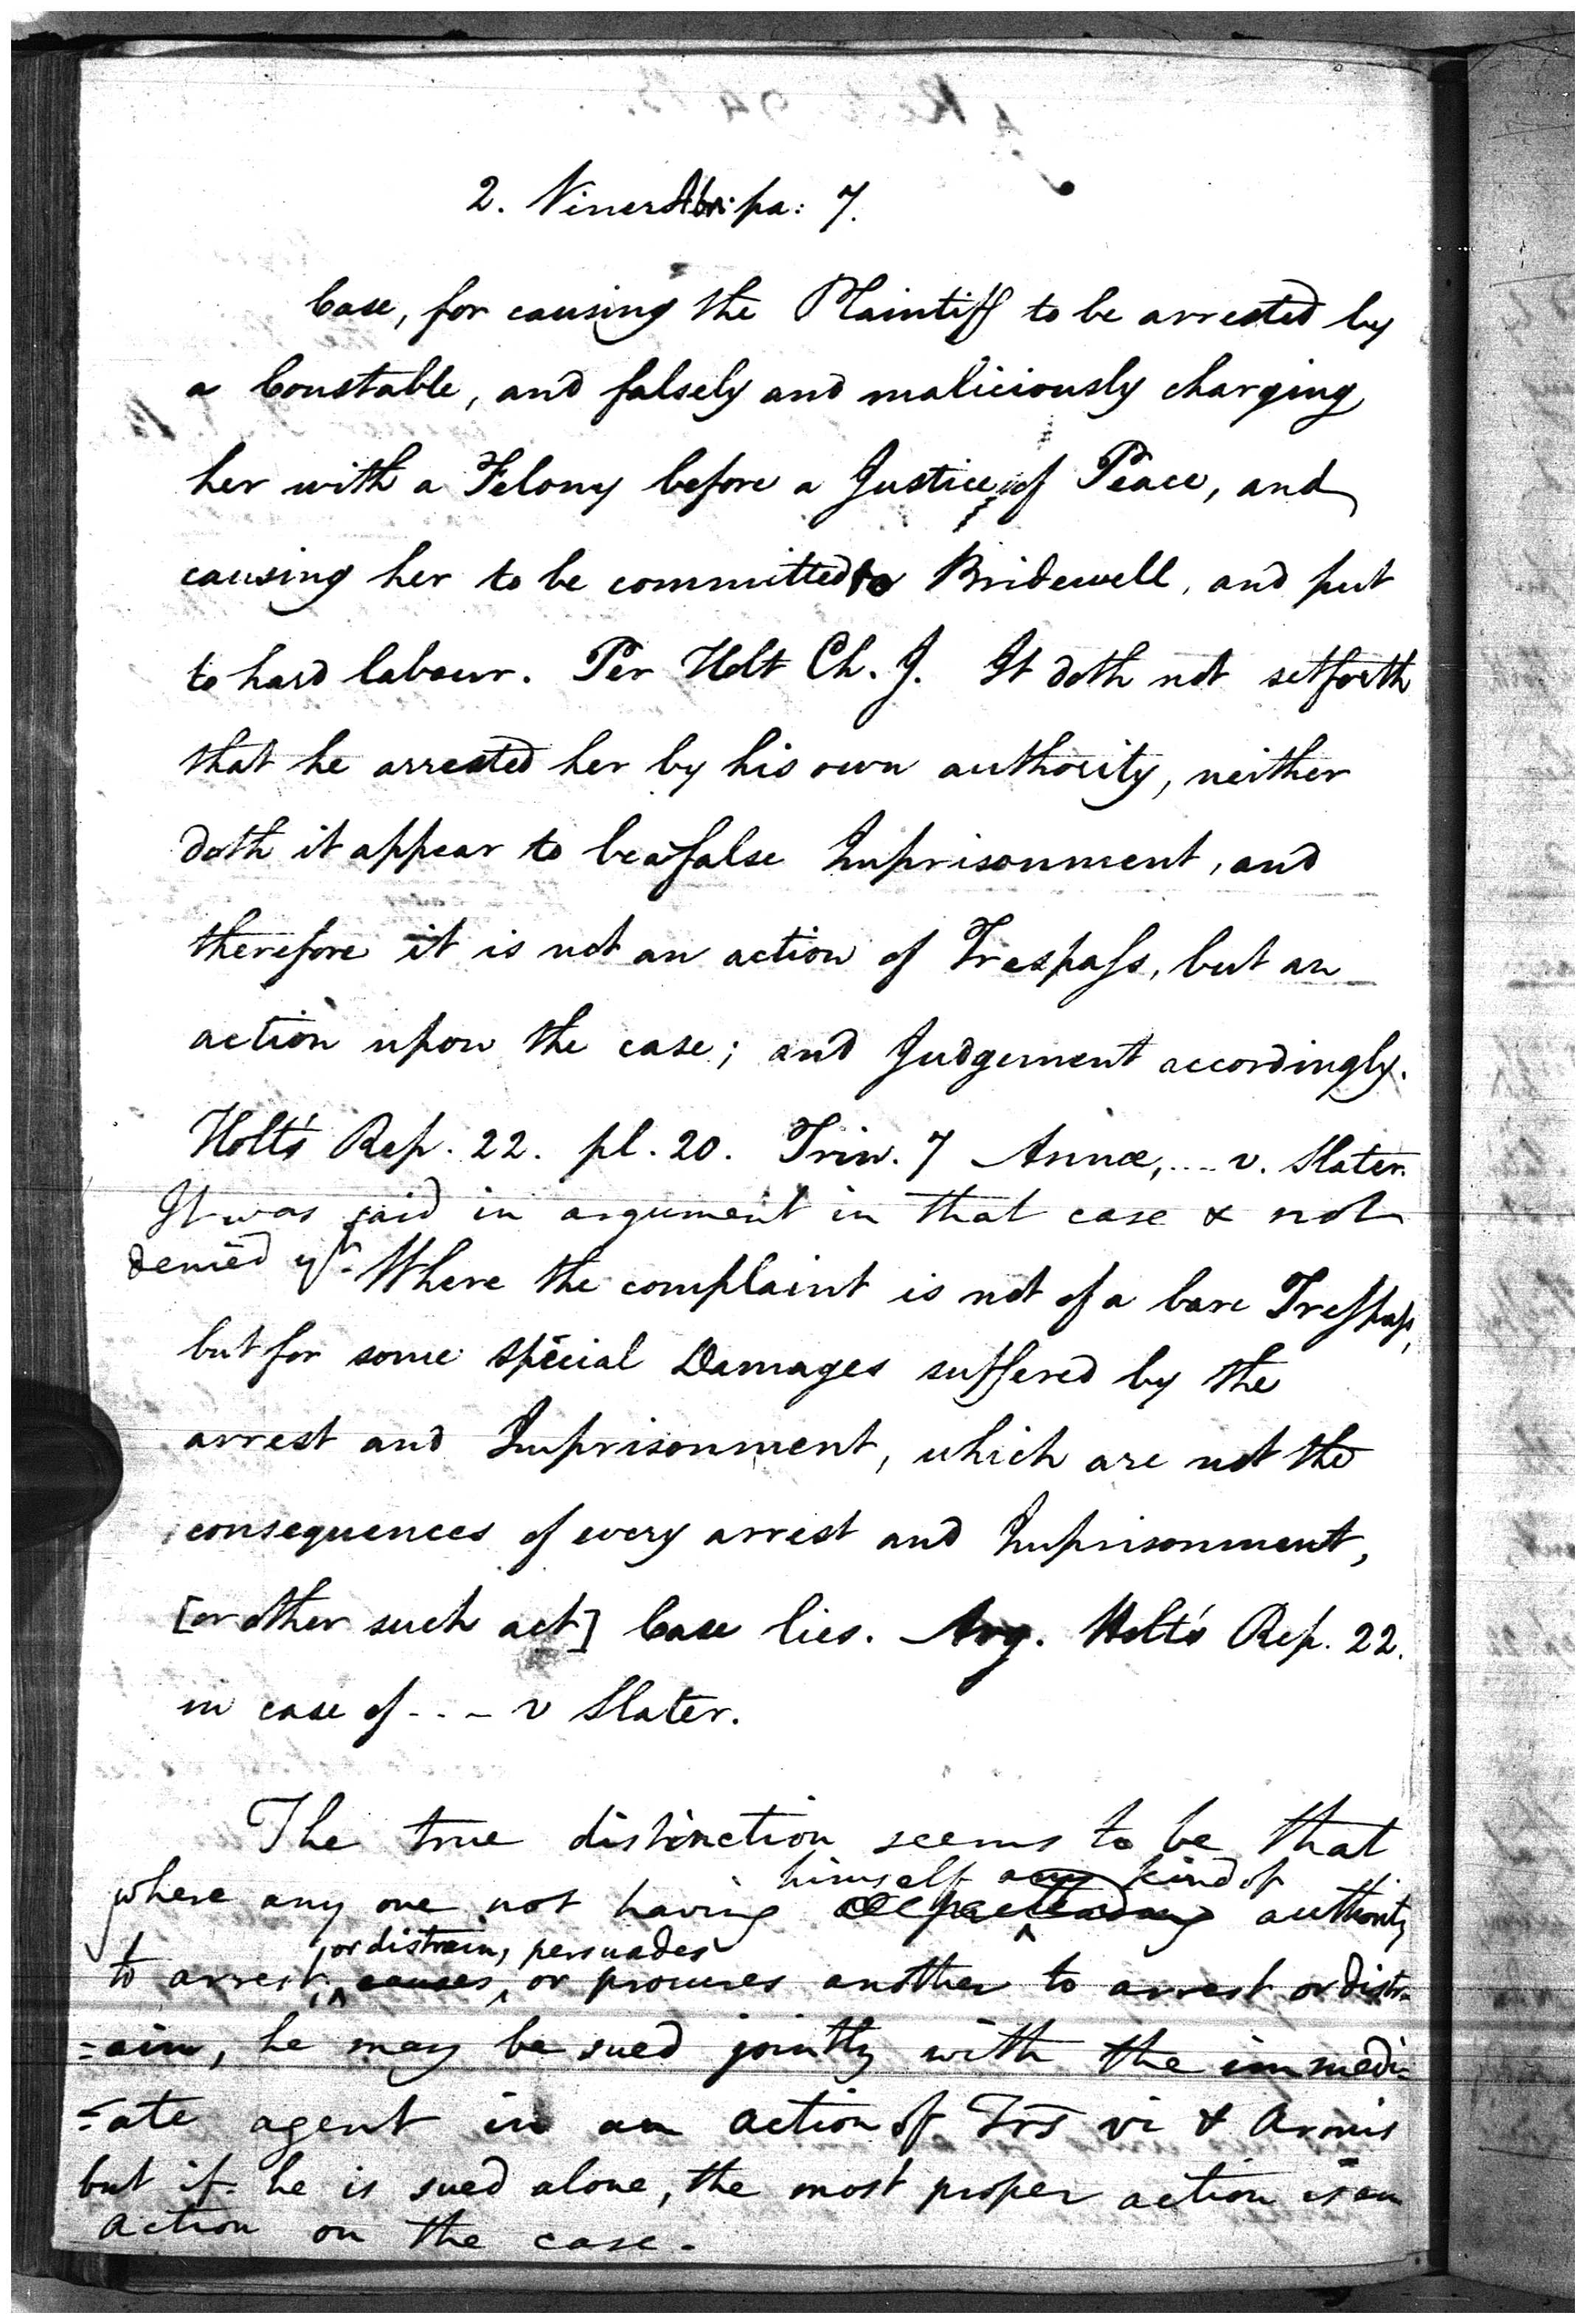 2. Viners Abr: pa: 7.
Case, for causing the Plaintiff to be arrested by
a Constable, and falsely and maliciously charging
her with a Felony before a Justice of Peace, and
causing her to be committed to Bridewell, and put
to hard labour. Per Holt Ch. J. It doth not setforth
that he arrested her by his own authority, neither
doth it appear to be a false Imprisonment, and
therefore it is not an action of Trespaſs, but an
action upon the case; and Judgement accordingly.
Holt's Rep. 22. pl. 20. Trin. 7 Annæ, ... v. Slater.
It was said in argument in that case & not
denied yt. Where the complaint is not of a bare Treſpaſs,
but for some special Damages suffered by the
arrest and Imprisonment, which are not the
consequences of every arrest and Imprisonment,
[or other such act] Case lies. Arg. Holt's Rep. 22.
in case of - - - v Slater.
The true distinction seems to be that
himself any kind of
where any one not having authority
or distrain, persuades
to arrest, causes, or procures another to arrest or distr-
=ain, he may be sued jointly with the immedi=
=ate agent in an action of Trs vi & Armis
but if he is sued alone, the most proper action is an
action on the case.